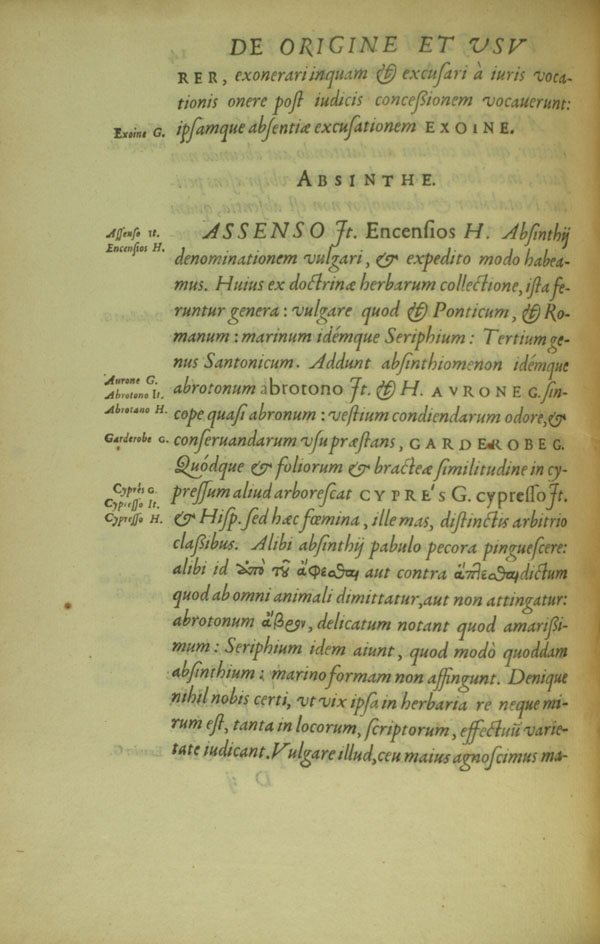 DE ORIGINE ET VSV
RER, exonerari inquam & excusari à iuris voca-
tionis onere post iudicis concessionem vocauerunt:
Exoine G.
ipsamque absentiæ excusationem EXOINE.
ABSINTHE.
Assenso It.
Encensios H.
ASSENSO It. Encensios H. Absinthij
denominationem vulgari, & expedito modo habea-
mus. Huius ex doctrinæ herbarum collectione, ista fe-
runtur genera: vulgare quod & Ponticum, & Ro-
manum: marinum idémque Seriphium: Tertium ge-
nus Santonicum. Addunt absinthiomenon idémque
Aurone G.
Abrotono It.
Abrotano H.
abrotonum abrotono It. & H. AVRONE G. sin-
cope quasi abronum: vestium condiendarum odore, &
Garderobe G.
conseruandarum vsu præstans, GARDEROBE G.
Quódque & foliorum & bracteæ similitudine in cy-
Cyprés G.
Cypresso It.
Cypresso H.
pressum aliud arborescat CYPRE's G. cypresso It.
& Hisp. sed hæc fœmina, ille mas, distinctis arbitrio
classibus. Alibi absinthij pabulo pecora pinguescere:
alibi id ἀπὸ τοῦ ἀφεῖσθαι aut contra ἅπλεσθαι dictum
quod ab omni animali dimittatur, aut non attingatur:
abrotonum ἄβρον, delicatum notant quod amarissi-
mum: Seriphium idem aiunt, quod modò quoddam
absinthium: marino formam non affingunt. Denique
nihil nobis certi, vt vix ipsa in herbaria re neque mi-
rum est, tanta in locorum, scriptorum, effectuũ varie-
tate iudicant. Vulgare illud, ceu maius agnoscimus ma-